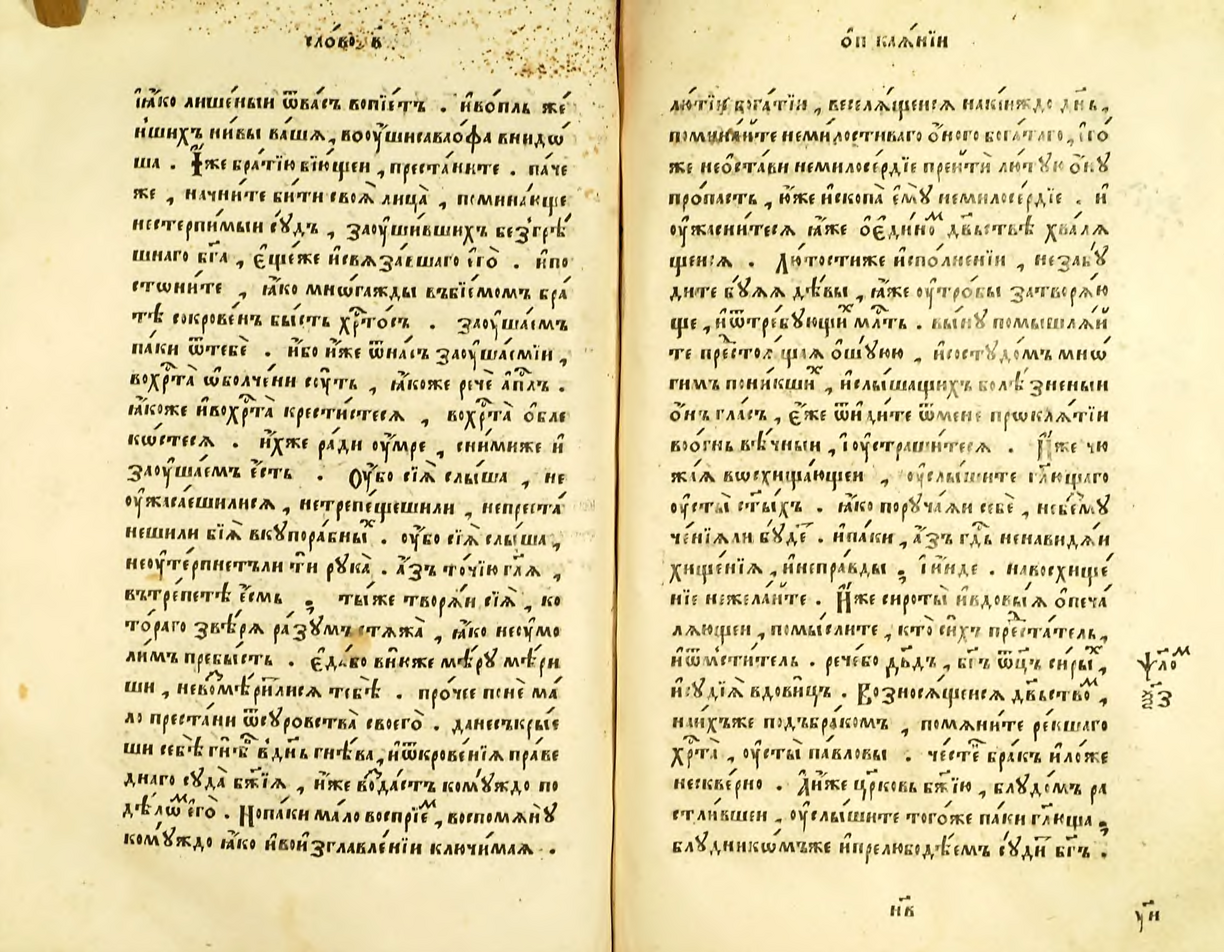 сло́во в҃
ꙗ҆́ко лише́ныи ѿва́съ вопїе́тъ . и҆во́пль же́
н̾шихъ ни́вы ва́шѧ , воѹ҆́шисаваѡ́фа внидѡ́
ша . И҆́же бра́тїю бїю́щеи , преста́ните . па́че
же , начни́те би́ти своѧ̀ лица̀ , помина́юще
нестерпи́мыи сꙋ́дъ , заѹши́вшихъ безгрѣ́
шнаго бг҃а , є҆ще́же и҆свѧза́вшаго є҆го̀ . и҆по
стыди́те , ꙗ҆́ко мно́гажды въбїе́момъ бра́
тѣ сокрове́нъ бы́сть хрⷭ҇то́съ . заѹша́емъ
па́ки ѿтебѐ . и҆́бо и҆́же ѿна́съ заѹша́емїи ,
вохрⷭ҇та̀ ѡ҆болче́ни сѹ́ть , ꙗ҆́коже речѐ а҆пⷭ҇лъ .
ꙗ҆́коже и҆вохрⷭ҇та̀ крести́стесѧ , вохрⷭ҇та̀ ѻ҆бле
ко́стесѧ . и҆́хже ра́ди ѹ҆́мре , сни́миже и҆
заѹша́емъ є҆́сть . Ѹ҆́бо сїѧ̀ слы́ша , не
ѹ҆жаса́ешилисѧ , нетрепе́щешили , непреста́
нешили бїѧ̀ вкꙋпора́бныⷯ . ѹ҆́бо сїѧ̀ слы́ша ,
неѹ҆те́рпнетъли ти рꙋка̀ . а҆́зъ то́чїю гл҃ѧ ,
вътре́петѣ є҆́смь ; ты́же творѧ́и сїѧ̀ , ко
то́раго ѕвѣ́рѧ ра́зꙋмъ стѧжа̀ , ꙗ҆́ко неѹмо
ли́мъ пребы́сть . є҆да́бо вню́же мѣ́рꙋ мѣ́ри
ши , невозмѣ́рилисѧ тебѣ̀ . про́чее понѐ ма́
ло преста́ни ѿсꙋро́вства̀ своего̀ . данесъкры́е
ши себѣ̀ гнѣ́въ вдн҃ь гнѣ́ва , и҆ѿкрове́нїѧ пра́ве
днаго сꙋда̀ бж҃їѧ , и҆́же возда́стъ комꙋ́ждо по
дѣ́лѡⷨ є҆го̀ . Нопа́ки ма́ло воспрїе́ⷨ , воспомѧнꙋ̀
комꙋ́ждо ꙗ҆́ко и҆вои҆зглавле́нїи ключи́маѧ .
ѻ҆п каѧ́нїи
лю́тїи бога́тїи , веселѧ́щеисѧ наки́иждо дн҃ь ,
помина́ите неми́лостиваго ѻ҆́ного бога́таго , є҆го́
же неѻ҆ста́ви немилосе́рдїе преитѝ лю́тꙋю ѻ҆́нꙋ
про́пасть , ю҆́же и҆скопа̀ є҆мꙋ̀ немилосе́рдїе . и҆
ѹ҆жасни́тесѧ ꙗ҆́же ѻ҆є҆ди́ноⷨ дв҃ьствѣ̀ хва́лѧ
щеисѧ . Лю́тостиже и҆спо́лнении , незабꙋ́
дите бꙋ́ѧѧ дѣ́вы , ꙗ҆́же ѹ҆тро́бы затворѧ́ю
ще , и҆ѿтре́бꙋющиⷯ мл҃ть . вы́нꙋ помышлѧ́й
те престоѧ́щаѧ ѻ҆шꙋ́юю , и҆состꙋдо́мъ мнѡ́
гимъ пони́кшиⷯ , и҆слы́шащихъ болѣ́зненыи
ѻ҆́нъ гла́съ , є҆́же ѿиди́те ѿменѐ проклѧ́тїи
воѻгнь вѣ́чныи , і҆ѹстраши́тесѧ . И҆́же чю
жа́ѧ восхища́ющеи , ѹ҆слы́шите гл҃ющаго
ѹ҆сты̀ ст҃ы́хъ . ꙗ҆́ко порꙋча́ѧи себѐ , небемꙋ
че́нїѧли бꙋ́деⷮ . и҆па́ки , а҆́зъ гдⷭ҇ь ненави́дѧи
хище́нїѧ , и҆непра́вды ; і҆и҆́нде . навосхище́
нїе нежела́ите . И҆́же сироты̀ и҆вдовы́ѧ ѻ҆печа́
лѧющеи , помы́слите , кто̀ си́хъ преста́тель ,
и҆ѿмсти́тель . рече́бо дв҃дъ , бг҃ъ ѿц҃ъ си́рыⷯ ,
и҆сꙋдїѧ̀ вдови́цъ . Возносѧ́щеисѧ дв҃ьствоⷨ ,
наи́хъже подъбра́комъ , помѧни́те ре́кшаго
хрⷭ҇та̀ , ѹ҆сты̀ па́вловы . че́стеⷩ бра́къ и҆ло́же
нескве́рно . А҆и҆́же цр҃ковь бж҃їю , блꙋдо́мъ ра
стли́вшеи , ѹ҆слы́шите того́же па́ки гл҃юща ;
блꙋдникѡ́мъже и҆прелюбодѣ́емъ сꙋ́ди бг҃ъ .
ѱло́ⷨ
ѯ҃з
н҃в
ѵ҃н